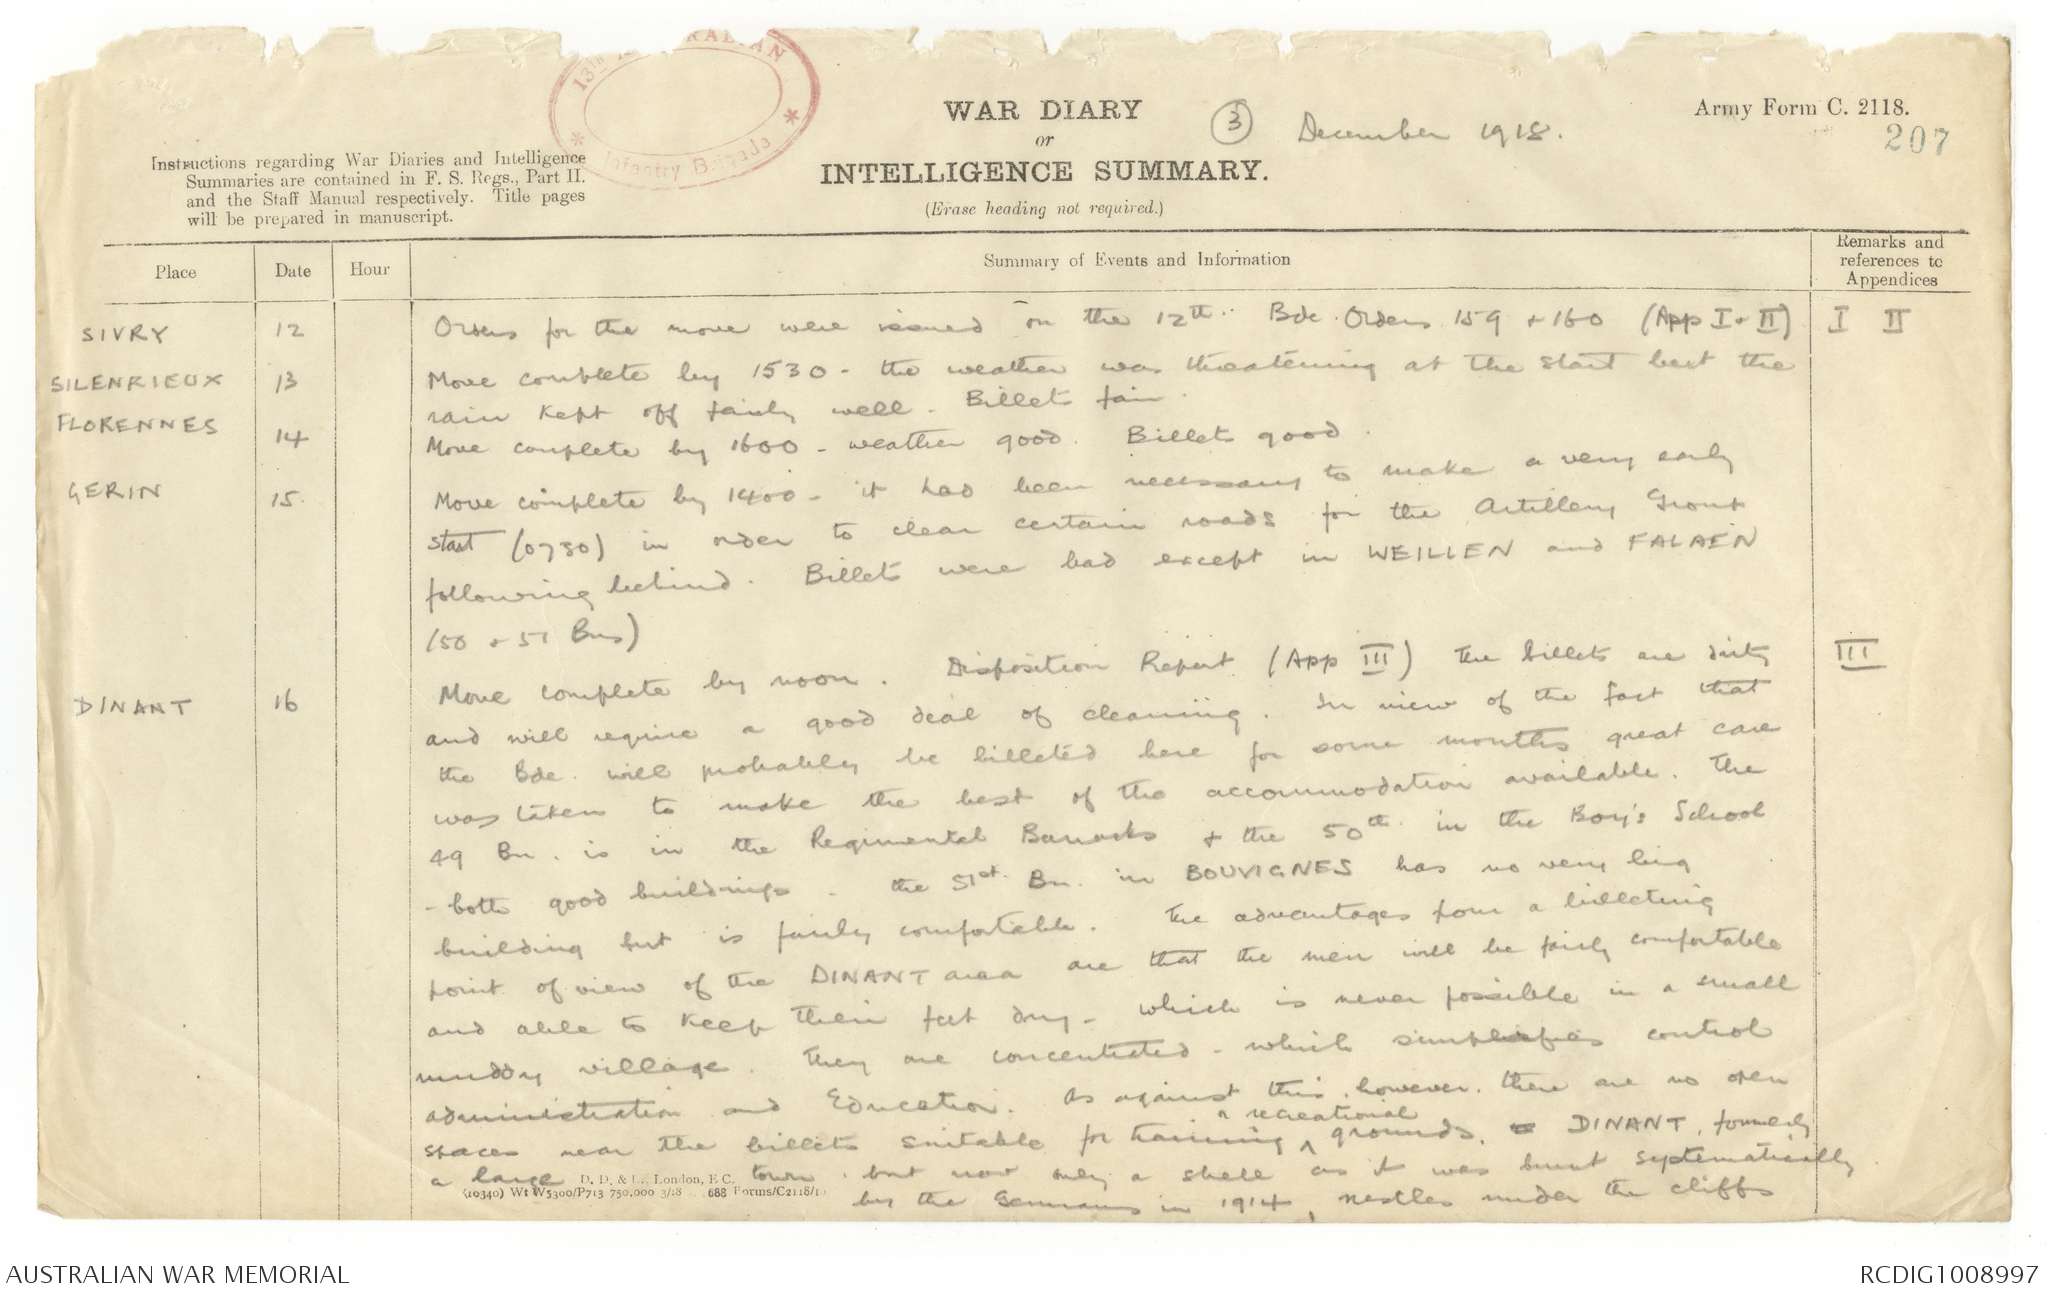 13th AUSTRALIAN
* Infantry Brigade *
WAR DIARY
or
INTELLIGENCE SUMMARY.
(Erase heading not required.)
3 December 1918.
Army Form C. 2118.
207
Instructions regarding War Diaries and Intelligence
Summaries are contained in F. S. Regs., Part II.
and the Staff Manual respectively. Title pages
will be prepared in manuscript.
Place
Date
Hour
Summary of Events and Information
Remarks and
references to
Appendices
SIVRY 12 Orders for the move were issued on the 12th. Bde. Orders 159 + 160 (App I + II) I II
SILENRIEUX 13 Move complete by 1530 - the weather was threatening at the start but the
rain kept off fairly well. Billets fair.
FLORENNES 14 Move complete by 1600 - weather good. Billets good.
GERIN 15. Move complete by 1400 - it had been necessary to make a very early
start (0730) in order to clear certain roads for the Artillery Group
following behind. Billets were bad except in WEILLEN and FALAEN
(50 + 51 Bns)
DINANT 16 Move complete by noon. Disposition Report (App III) The billets are dirty III
and will require a good deal of cleaning. In view of the fact that
the Bde. will probably be billeted here for some months great care
was taken to make the best of the accommodation available. The
49 Bn. is in the Regimental Barracks + the 50th. in the Boy's School
- both good buildings - the 51st. Bn. in BOUVIGNES has no very big
building but is fairly comfortable. The advantages from a billeting
point of view of the DINANT area are that the men will be fairly comfortable
and able to keep their feet dry - which is never possible in a small
muddy village. They are concentrated - which simplifies control
administration and Education. As against this, however, there are no open
spaces near the billets suitable for training ^ recreational grounds. DINANT, formerly
a large town, but now only a shell as it was burnt systematically
by the Germans in 1914, nestles under the cliffs
D. D. & L., London, E.C.
(10340) Wt W5300/P713 750,000 3/18 688 Forms/C2118/1
AUSTRALIAN WAR MEMORIAL
RCDIG1008997